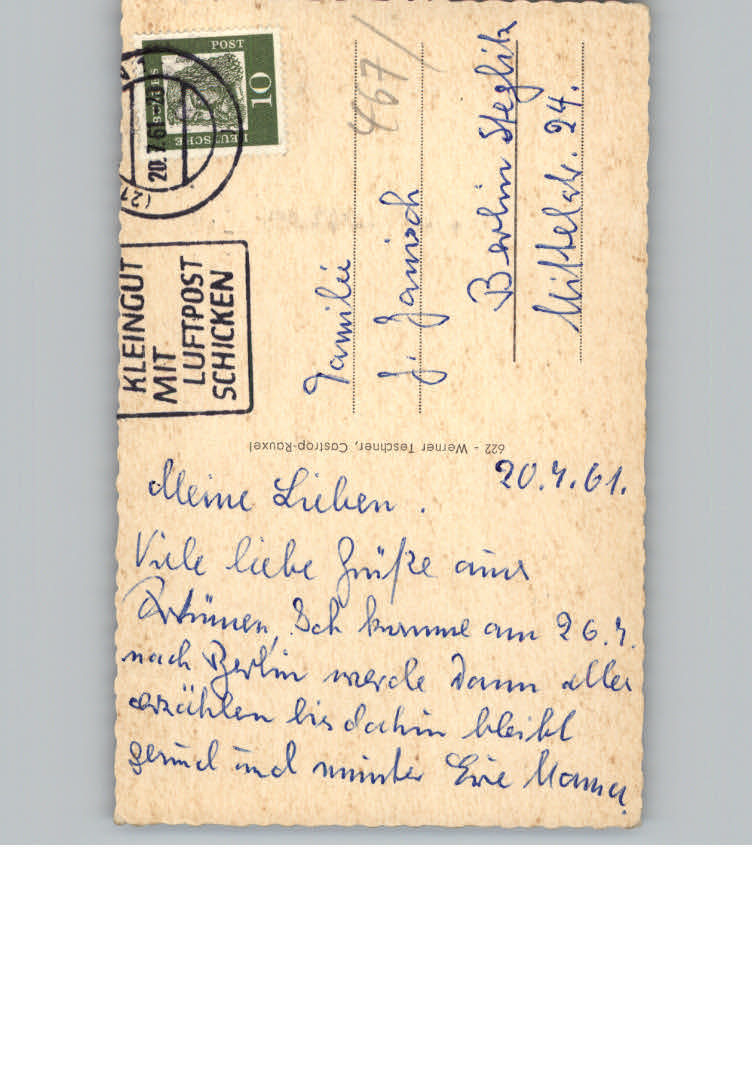 DEUTSCHE
POST
10
20.7.61
KLEINGUT
MIT
LUFTPOST
SCHICKEN
467/
Familie
J. Janisch
Berlin Steglitz
Mittelstr. 24.
622 - Werner Teschner, Castrop-Rauxel
20.7.61.
Meine Lieben.
Viele liebe Grüße aus
Ich komme am 26.7.
nach Berlin werde dann alles
erzählen bis dahin bleibt
gesund und munter Eure Mama.